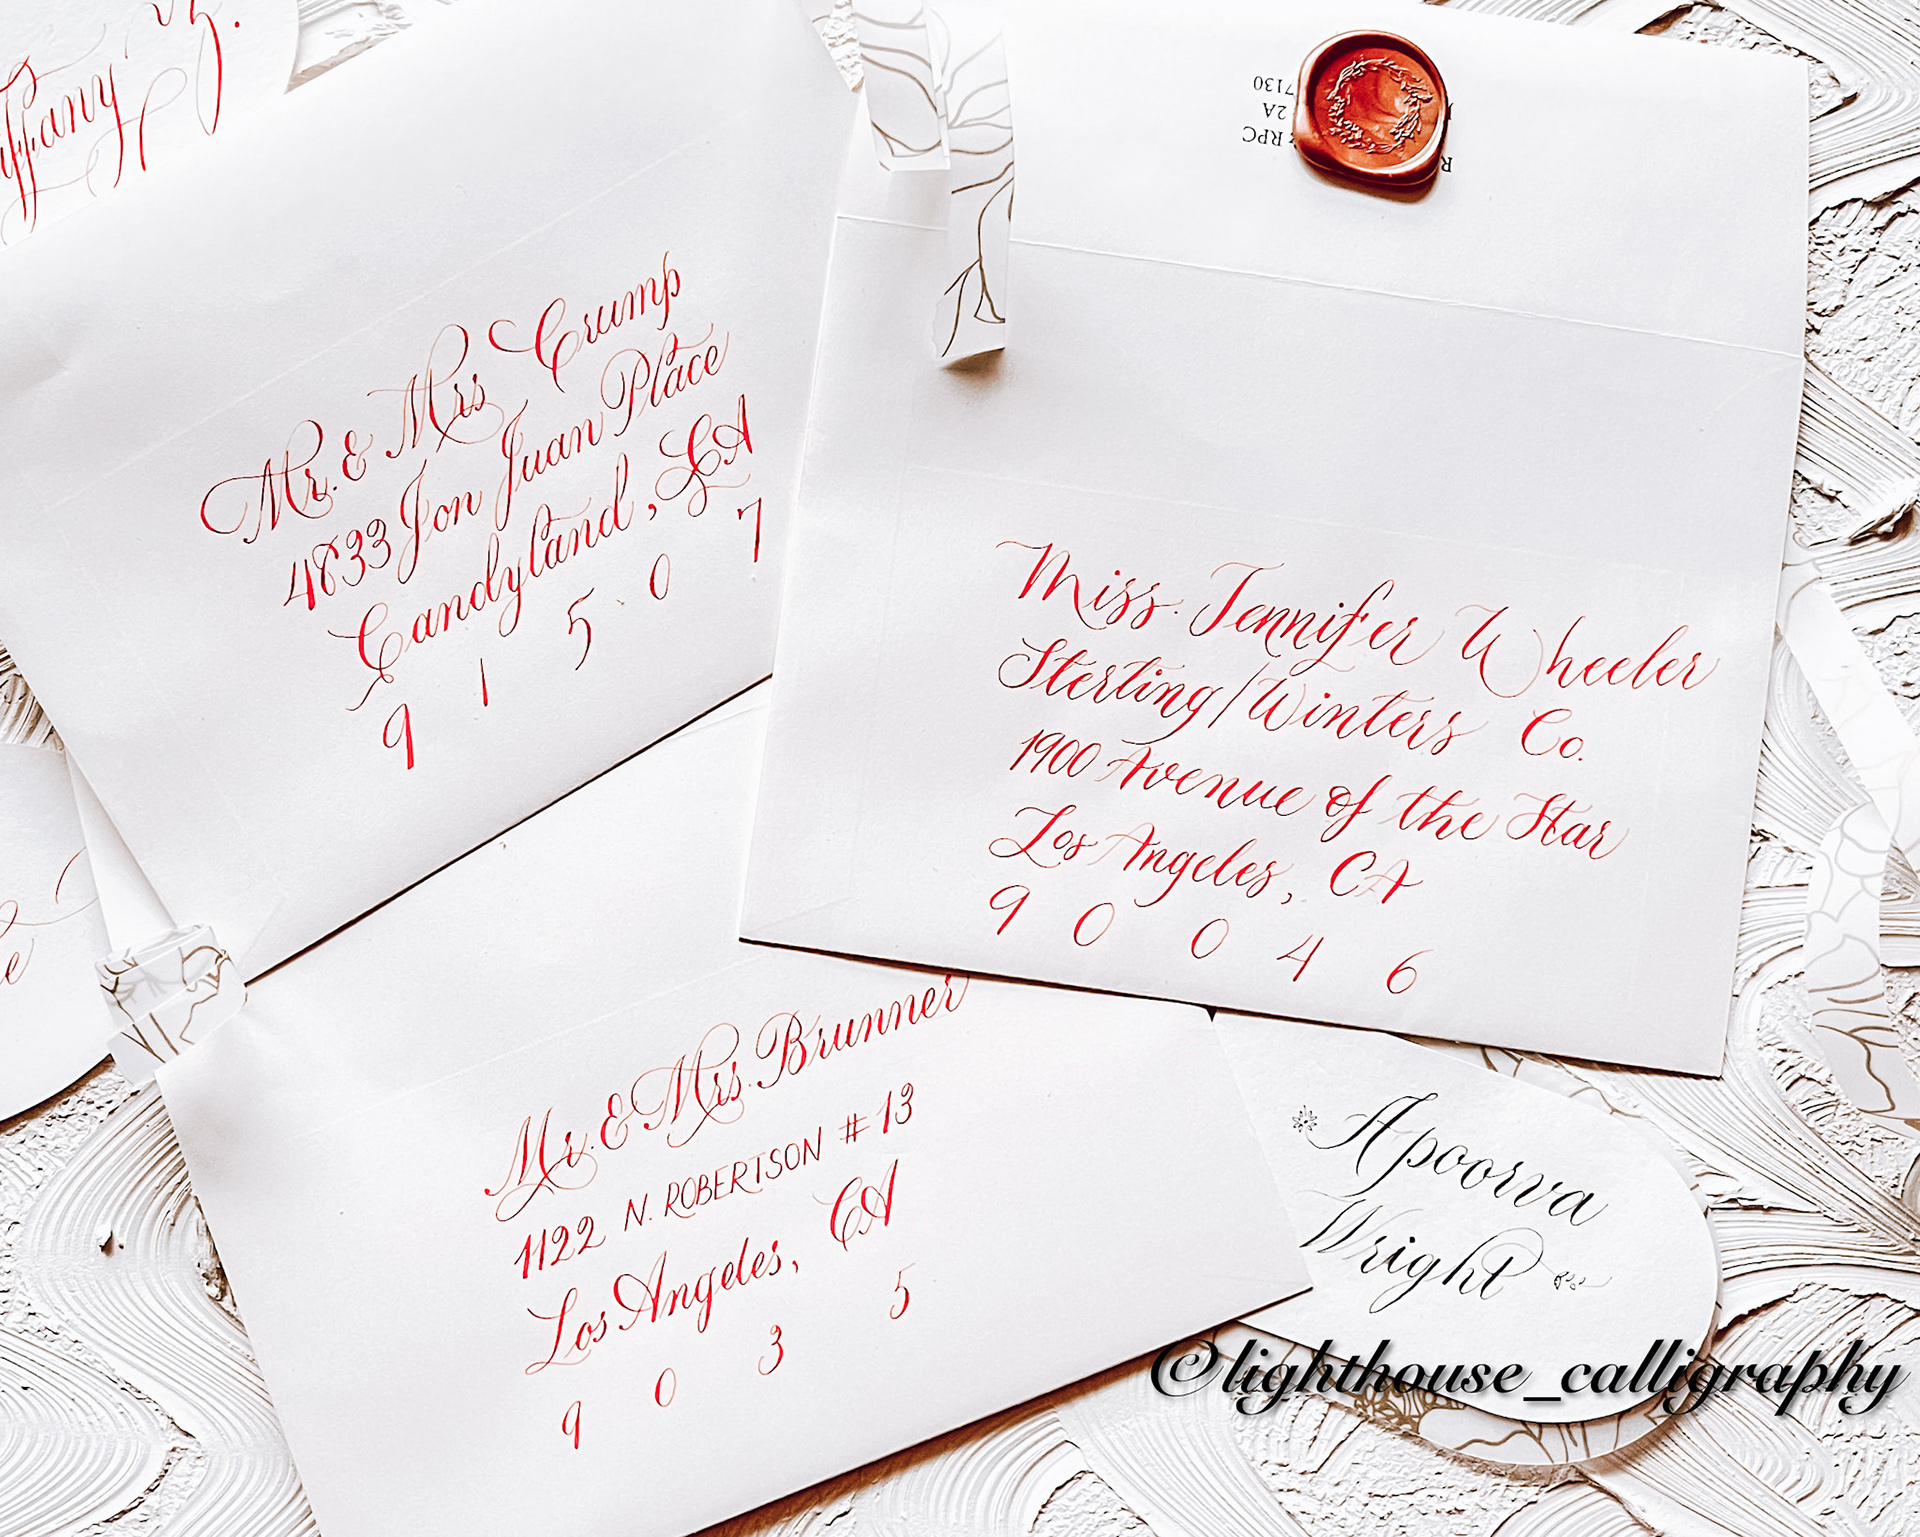 Mr. & Mrs Crump
4833 Jon Juan Place
Candyland, LA
9 1 5 0 7
7130
2A
RPC
R
Miss. Jennifer Wheeler
Sterling/Winters Co.
1900 Avenue of the Star
Los Angeles, CA
9 0 0 4 6
Mr. & Mrs. Brunner
1122 N. ROBERTSON #13
Los Angeles, CA
9 0 3 5
Apoorva
Wright
@lighthouse_calligraphy